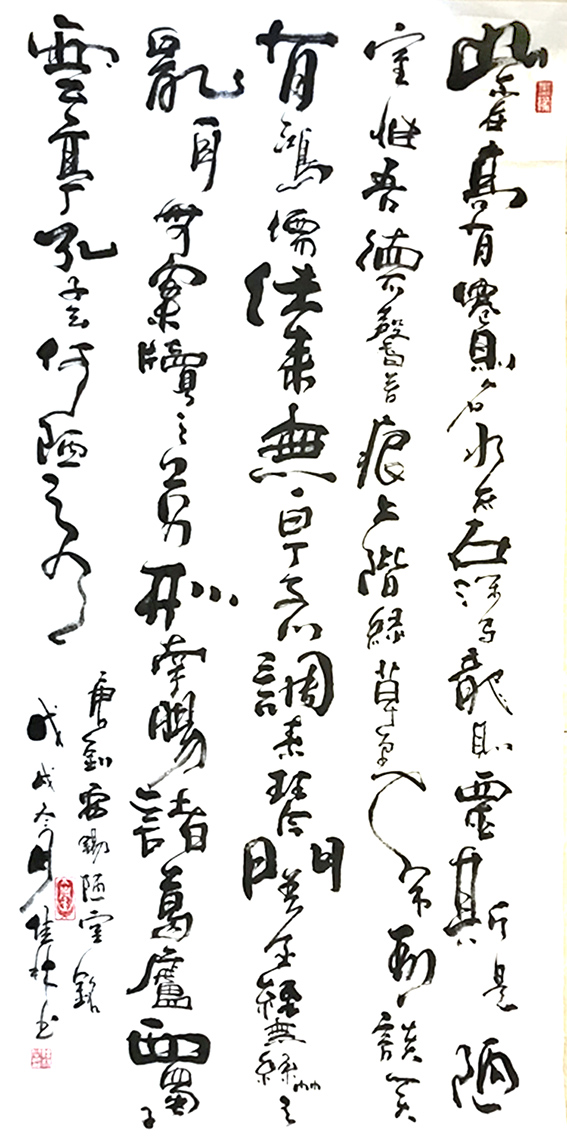 山不在高有僊則名水不在深有龍則靈斯是陋
室惟吾德馨苔痕上階綠草色入帘青談笑
有鴻儒往來無白丁可以調素琴閱金經無絲竹之
亂耳無案牘之勞形南陽諸葛廬西蜀子
雲亭孔子云何陋之有
唐劉禹錫陋室銘
戊戌冬月佳林书